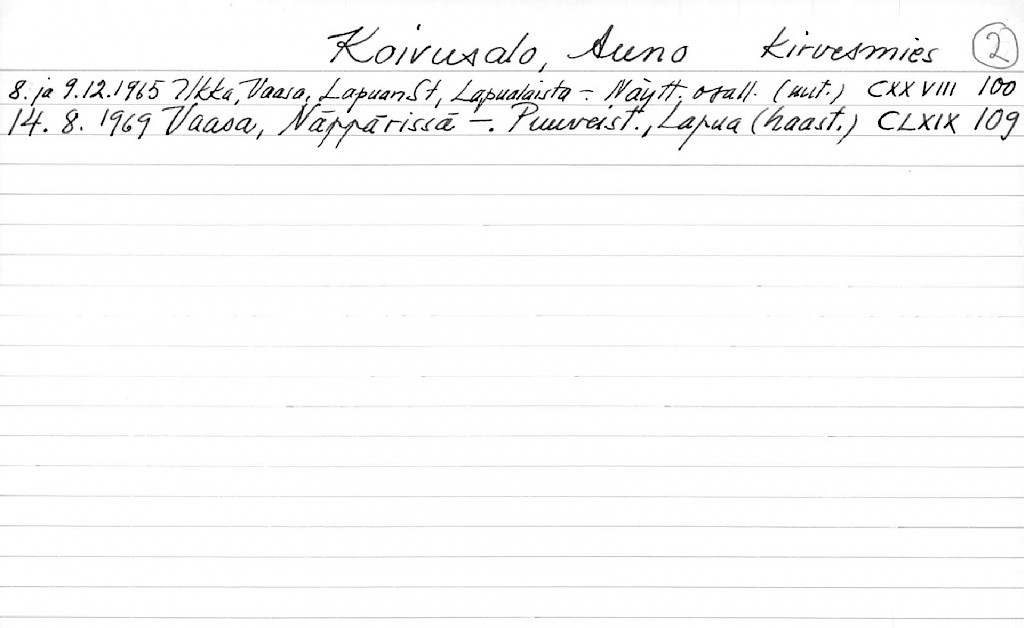 Koivusalo, Auno kirvesmies 2
8. ja 9.12.1965 Ilkka, Vaasa, LapuanSt, Lapualaista –. Näytt. osall. (mut.) CXXVIII 100
14. 8. 1969 Vaasa, Näppärissä –. Puuveist., Lapua (haast.) CLXIX 109